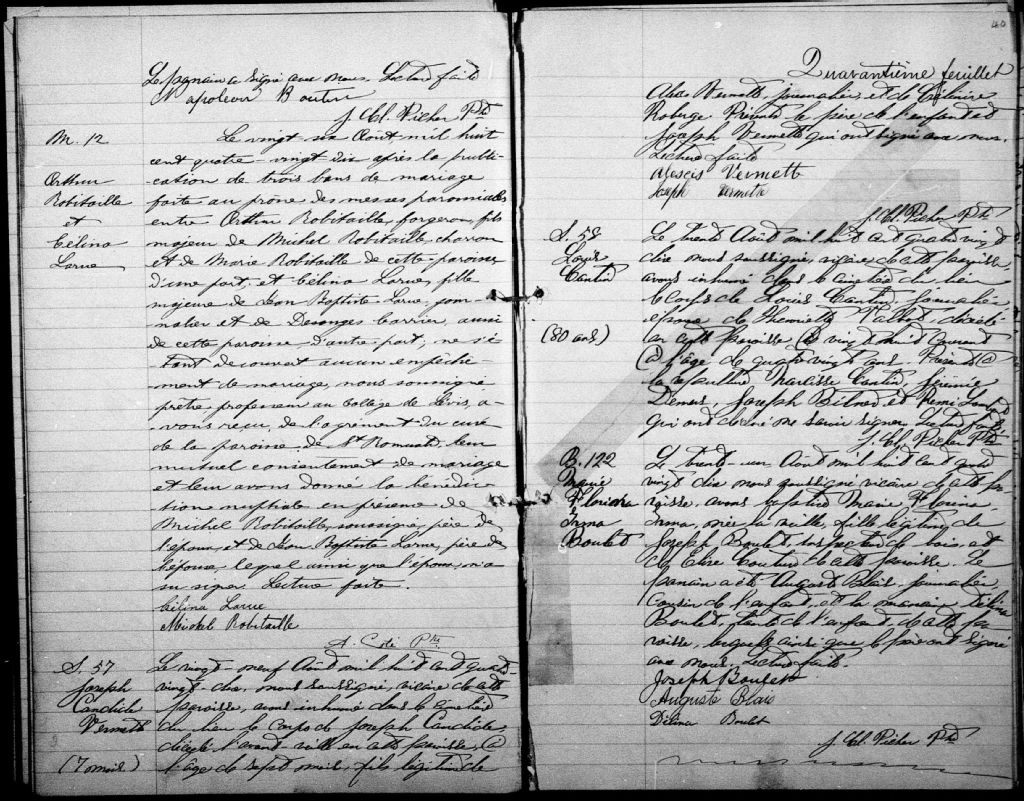 Le parrain a signé avec nous. Lecture faite
Napoleon Boutin
J. Cl. Picher Ptre
M. 12
Arthur
Robitaille
et
Célina
Larue
Le vingt six Août mil huit
cent quatre-vingt dix après la publi-
cation de trois bans de mariage
faite au prone des messes paroissiales
entre Arthur Robitaille, forgeron, fils
majeur de Michel Robitaille, charron
et de Marie Robitaille de cette paroisse
d'une part, et Célina Larue, fille
majeure de Jean Baptiste Larue, jour-
nalier et de Desanges Carrier, aussi
de cette paroisse d'autre part; ne s'é-
tant découvert aucun empêche-
ment de mariage, nous soussigné
prêtre, professeur au Collège de Lévis, a-
vons reçu, de l'agrément du curé
de la paroisse de St Romuald leur
mutuel consentement de mariage
et leur avons donné la bénédic-
tion nuptiale en présence de
Michel Robitaille, soussigné, père de
l'époux, et de Jean Baptiste Larue, père de
l'épouse, lequel ainsi que l'époux, n'a
su signer. Lecture faite.
Célina Larue
Michel Robitaille
A. Coté Ptre
S. 57
Joseph
Candide
Vermett
(7 mois)
Le vingt-neuf Août mil huit cent quatre
vingt-dix, nous soussigné, vicaire de cette
paroisse, avons inhumé dans le cimetière
du lieu le corps de Joseph Candide,
décédé l'avant-veille en cette paroisse, à
l'âge de sept mois, fils légitime de
40
Quarantième feuillet
Vermette, journalier, et de Célinaire
Roberge. Présents le père de l'enfant et
Joseph Vermette qui ont signé avec nous.
Lecture faite
Alexis Vermett
Joseph Vermette
J. Cl. Picher Ptre
S. 58
Louis
Cantin
(80 ans)
Le trente Août mil huit cent quatre vingt
dix nous soussigné, vicaire de cette paroisse,
avons inhumé dans le cimetière du lieu
le corps de Louis Cantin, journalier
époux de Henriette Talbot décédé
en cette paroisse le vingt huit courant
à l'âge de quatre vingts ans. Présents à
la sépulture Narcisse Cantin, Jérémie
Demers, Joseph Bilodeau et Rémi Lambert
qui ont déclaré ne savoir signer. Lecture faite
J. Cl. Picher Ptre
B. 122
Marie
Florida
Irma
Boulet
Le trente-un Août mil huit cent quatre
vingt dix nous soussigné vicaire de cette pa-
roisse, avons baptisé Marie Florida
Irma, née la veille, fille légitime de
Joseph Boulet inspecteur de bois, et
de Claire Couture de cette paroisse. Le
parrain a été Auguste Blais journalier
cousin de l'enfant, et la marraine Délina
Boulet, tante de l'enfant, de cette pa-
roisse, lesquels ainsi que le père ont signé
avec nous. Lecture faite.
Joseph Boulet
Auguste Blais
Délina Boulet
J. Cl. Picher Ptre